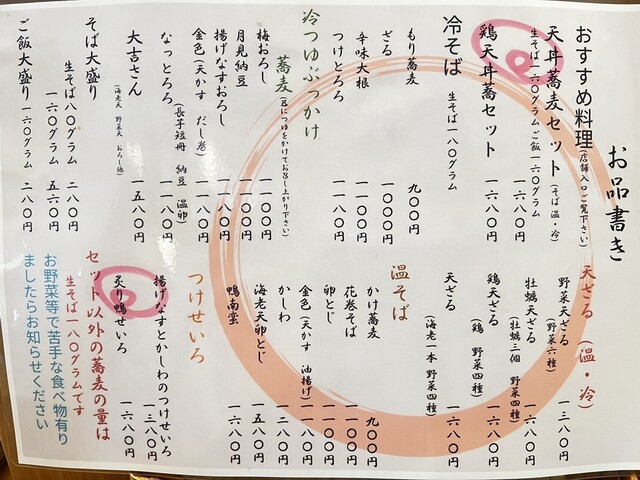 お品書き
おすすめ料理(店舗入口ご覧下さい)
天丼蕎麦セット(そば 温・冷)
生そば一六〇グラムご飯一六〇グラム
一六八〇円
鶏天丼蕎セット
一六八〇円
冷そば 生そば一八〇グラム
もり蕎麦 九〇〇円
ざる 一〇〇〇円
辛味大根 一一〇〇円
つけとろろ 一一八〇円
冷つゆぶっかけ
蕎麦(器につゆをかけてお召し上がり下さい)
梅おろし 一一〇〇円
月見納豆 一一〇〇円
揚げなすおろし 一一八〇円
金色(天かす だし巻) 一一八〇円
なっとろろ(長芋短冊 納豆 温卵) 一一八〇円
大吉さん(海老天 野菜天 おろし他) 一五八〇円
そば大盛り
生そば八〇グラム 二八〇円
一六〇グラム 五六〇円
ご飯大盛り 一六〇グラム 二八〇円
天ざる(温・冷)
野菜天ざる(野菜六種) 一三八〇円
牡蠣天ざる(牡蠣三個 野菜四種) 一六八〇円
鶏天ざる(鶏 野菜四種) 一六八〇円
天ざる(海老一本 野菜四種) 一六八〇円
温そば
かけ蕎麦 九〇〇円
花巻そば 一〇〇〇円
卵とじ 一〇〇〇円
金色(天かす 油揚げ) 一一八〇円
かしわ 一二八〇円
海老天卵とじ 一五八〇円
鴨南蛮 一六八〇円
つけせいろ
揚げなすとかしわのつけせいろ 一三八〇円
炙り鴨せいろ 一六八〇円
セット以外の蕎麦の量は
生そば一八〇グラムです
お野菜等で苦手な食べ物有り
ましたらお知らせください